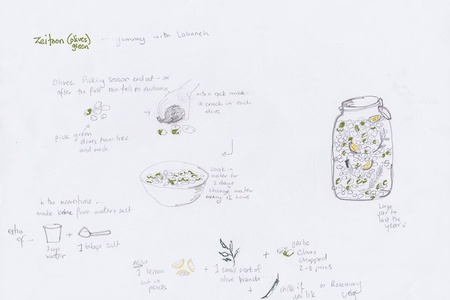 Zeitoon (olives) green - yummy with Labaneh
Olives Picking season
after the first rain fall in Autumn
pick green
olives from tree
and wash
with a rock make
a crack in each
olive
Soak in
water for
2 days
change water
every 12 hours
in the meantime ..
made brine from water & salt
1 cup
water
+
1 tbsp salt
1 lemon
cut in
+
1 small part of
olive branch
+
garlic
cloves
chopped
2-3 pieces
+
chilli if
you like
or Rosemary
Large
jar to
last the
year